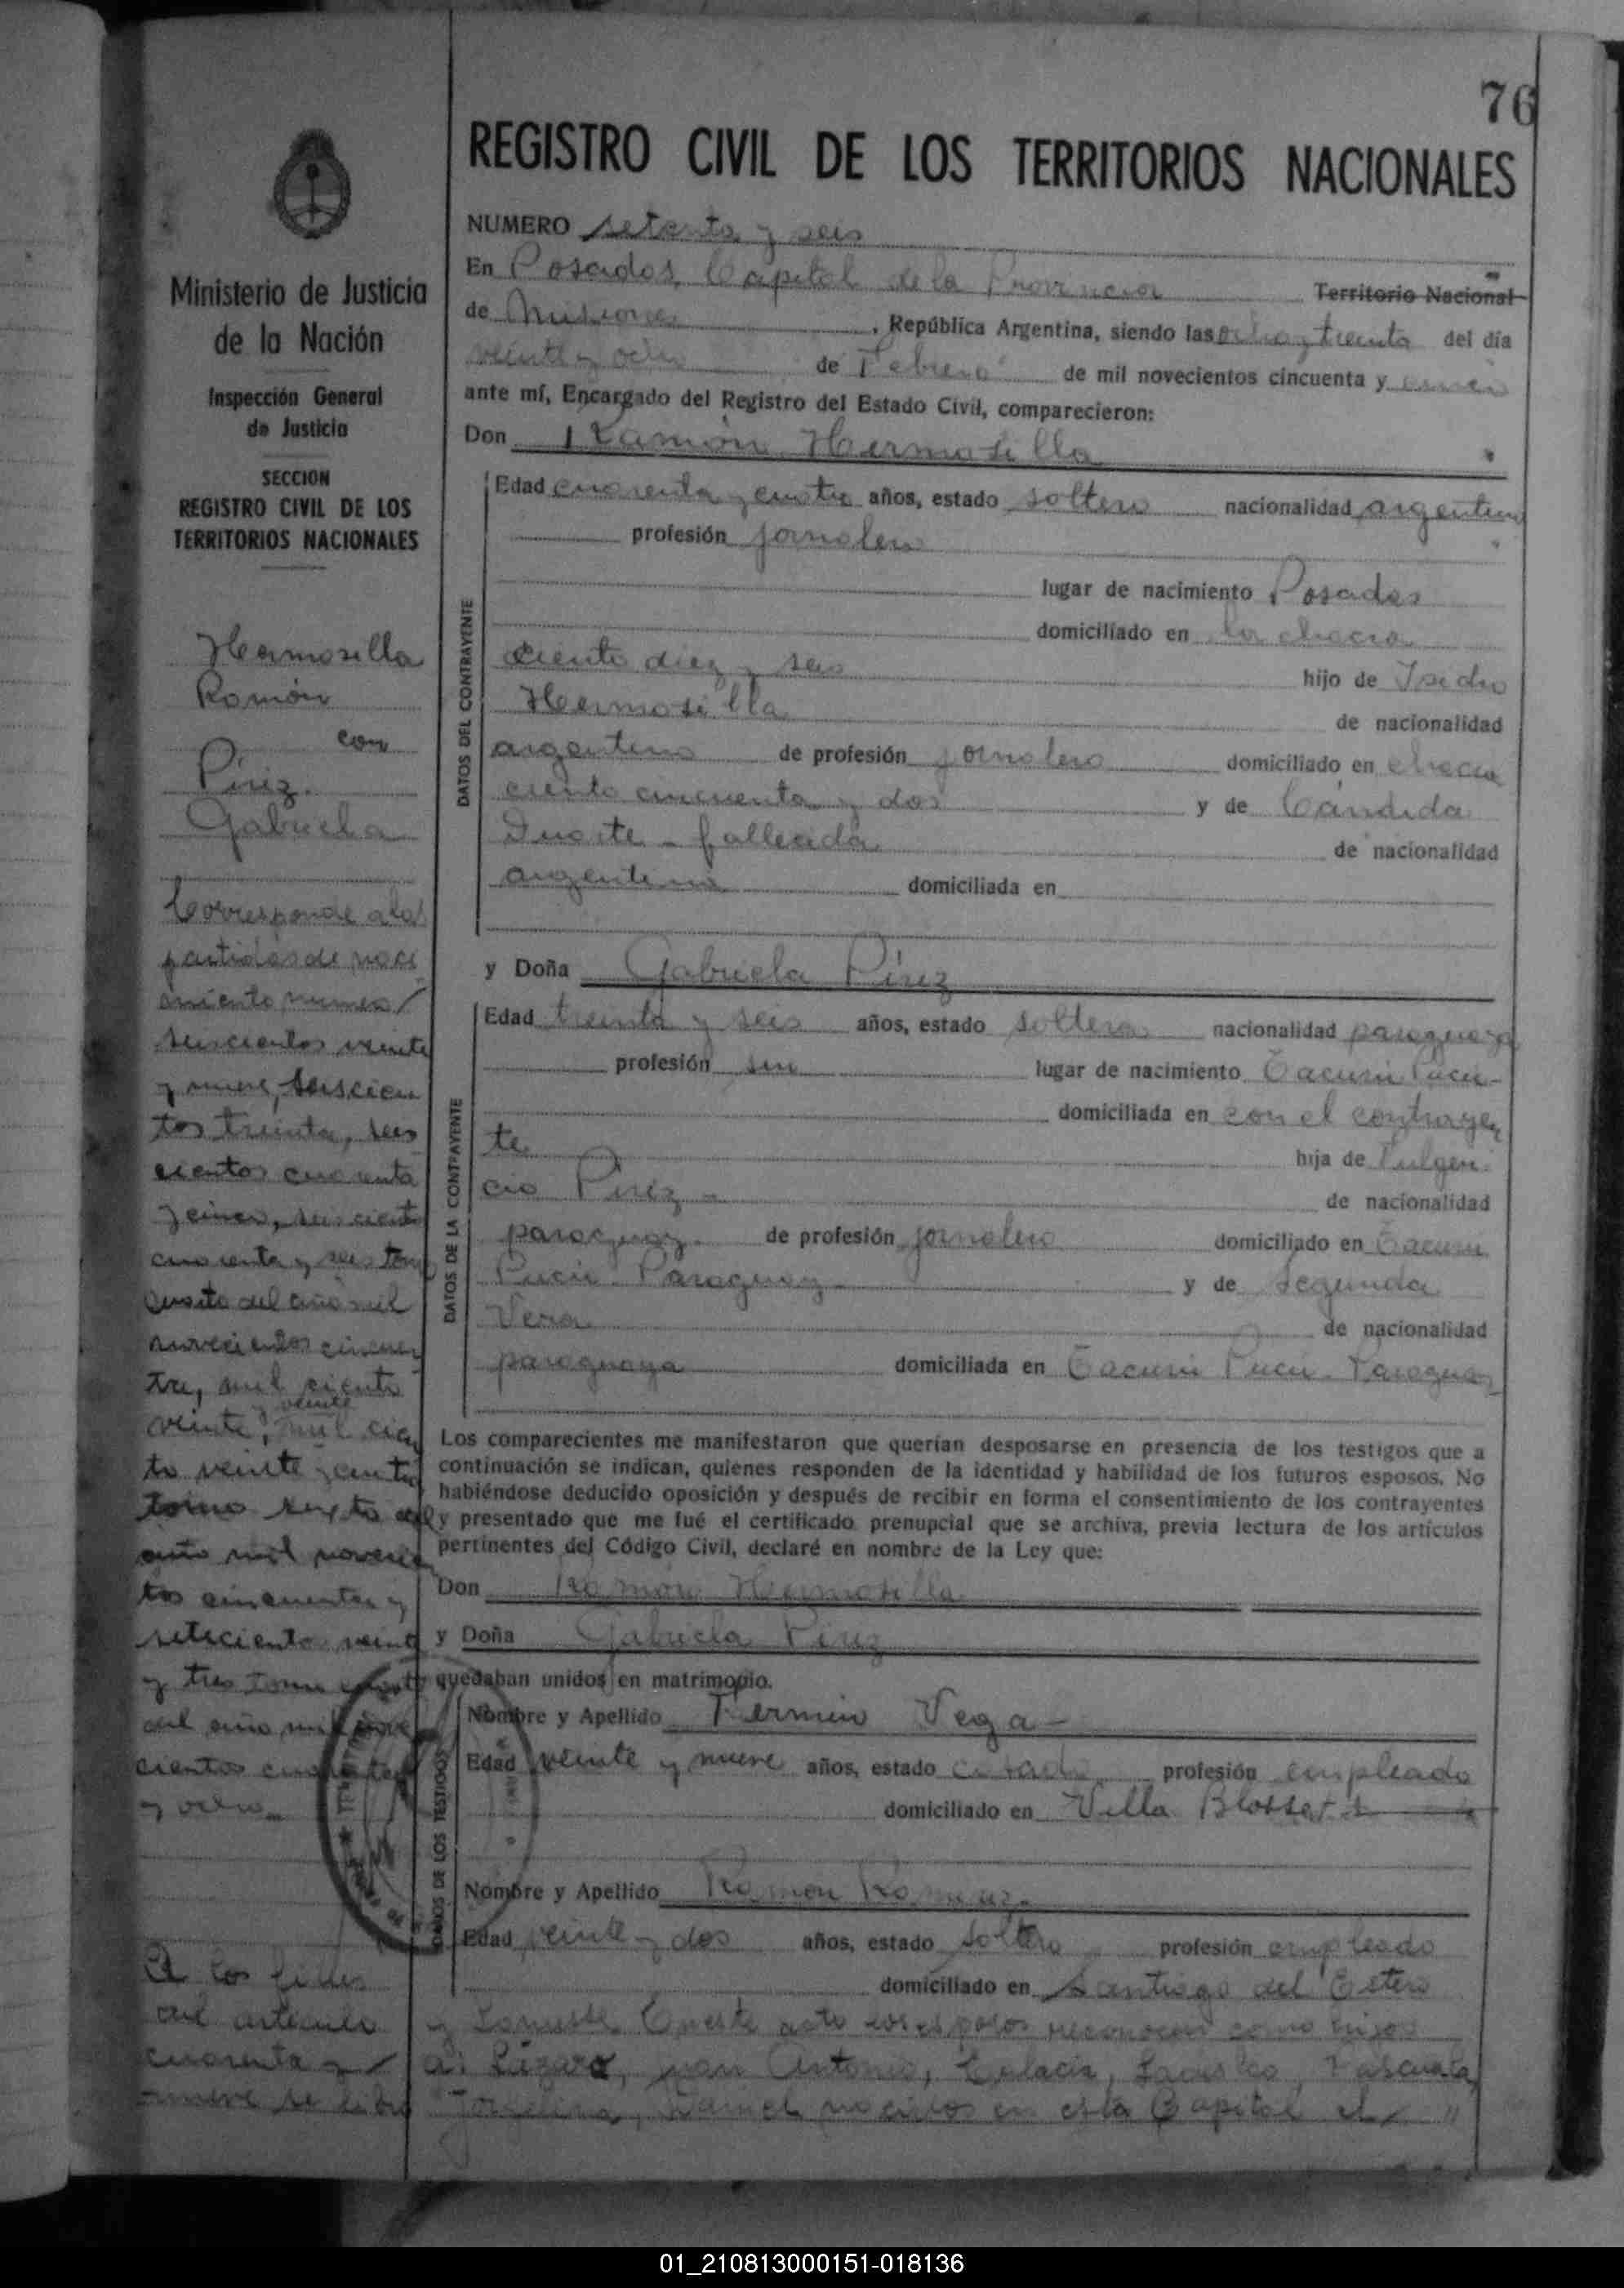 76
REGISTRO CIVIL DE LOS TERRITORIOS NACIONALES
Ministerio de Justicia
de la Nación
Inspección General
de Justicia
SECCION
REGISTRO CIVIL DE LOS
TERRITORIOS NACIONALES
Hermosilla
Ramón
con
Pírez
Gabriela
Corresponde a las
partidas de naci
miento numero
seiscientos veinte
y nueve, seiscien
tos treinta, seis
cientos cuarenta
y cinco, seiscientos
cuarenta y seis tomo
cuarto del año mil
novecientos cincuen
ta, mil ciento
veinte
veinte, mil cien
to veinte y cuatro
tomo sexto del
año mil novecien
tos cincuenta y
setecientos veinte
y tres tomo
del año mil nove
cientos cuarenta
y ocho
A los fines
del artículo
cuarenta y
nueve se libró
NUMERO setenta y seis
En Posadas, Capital de la Provincia Territorio Nacional
de Misiones, República Argentina, siendo las ocho y treinta del día
veinte y ocho de Febrero de mil novecientos cincuenta y cinco
ante mí, Encargado del Registro del Estado Civil, comparecieron:
Don Ramón Hermosilla
DATOS DEL CONTRAYENTE
Edad cuarenta y cuatro años, estado soltero nacionalidad argentino
profesión jornalero
lugar de nacimiento Posadas
domiciliado en la chacra
ciento diez y seis hijo de Isidro
Hermosilla de nacionalidad
argentino de profesión jornalero domiciliado en chacra
ciento cincuenta y dos y de Cándida
Duarte - fallecida de nacionalidad
argentina domiciliada en
y Doña Gabriela Pírez
DATOS DE LA CONTRAYENTE
Edad treinta y seis años, estado soltera nacionalidad paraguaya
profesión sin lugar de nacimiento Tacurú Pucú-
domiciliada en con el contrayen
te hija de Fulgen
cio Pírez - de nacionalidad
paraguay. de profesión jornalero domiciliado en Tacurú
Pucú - Paraguay y de Segunda
Vera de nacionalidad
paraguaya domiciliada en Tacurú Pucú - Paraguay
Los comparecientes me manifestaron que querían desposarse en presencia de los testigos que a
continuación se indican, quienes responden de la identidad y habilidad de los futuros esposos. No
habiéndose deducido oposición y después de recibir en forma el consentimiento de los contrayentes
y presentado que me fué el certificado prenupcial que se archiva, previa lectura de los artículos
pertinentes del Código Civil, declaré en nombre de la Ley que:
Don Ramón Hermosilla
y Doña Gabriela Pírez
quedaban unidos en matrimonio.
DATOS DE LOS TESTIGOS
Nombre y Apellido Fermín Vega -
Edad veinte y nueve años, estado casado profesión empleado
domiciliado en Villa Blosset
Nombre y Apellido Ramón Ramírez.
Edad veinte y dos años, estado soltero profesión empleado
domiciliado en Santiago del Estero
y En este acto los esposos reconocen como hijos
a: Lázaro, Juan Antonio, Ladislao, Pascuala,
Daniel nacidos en esta Capital el
01_210813000151-018136